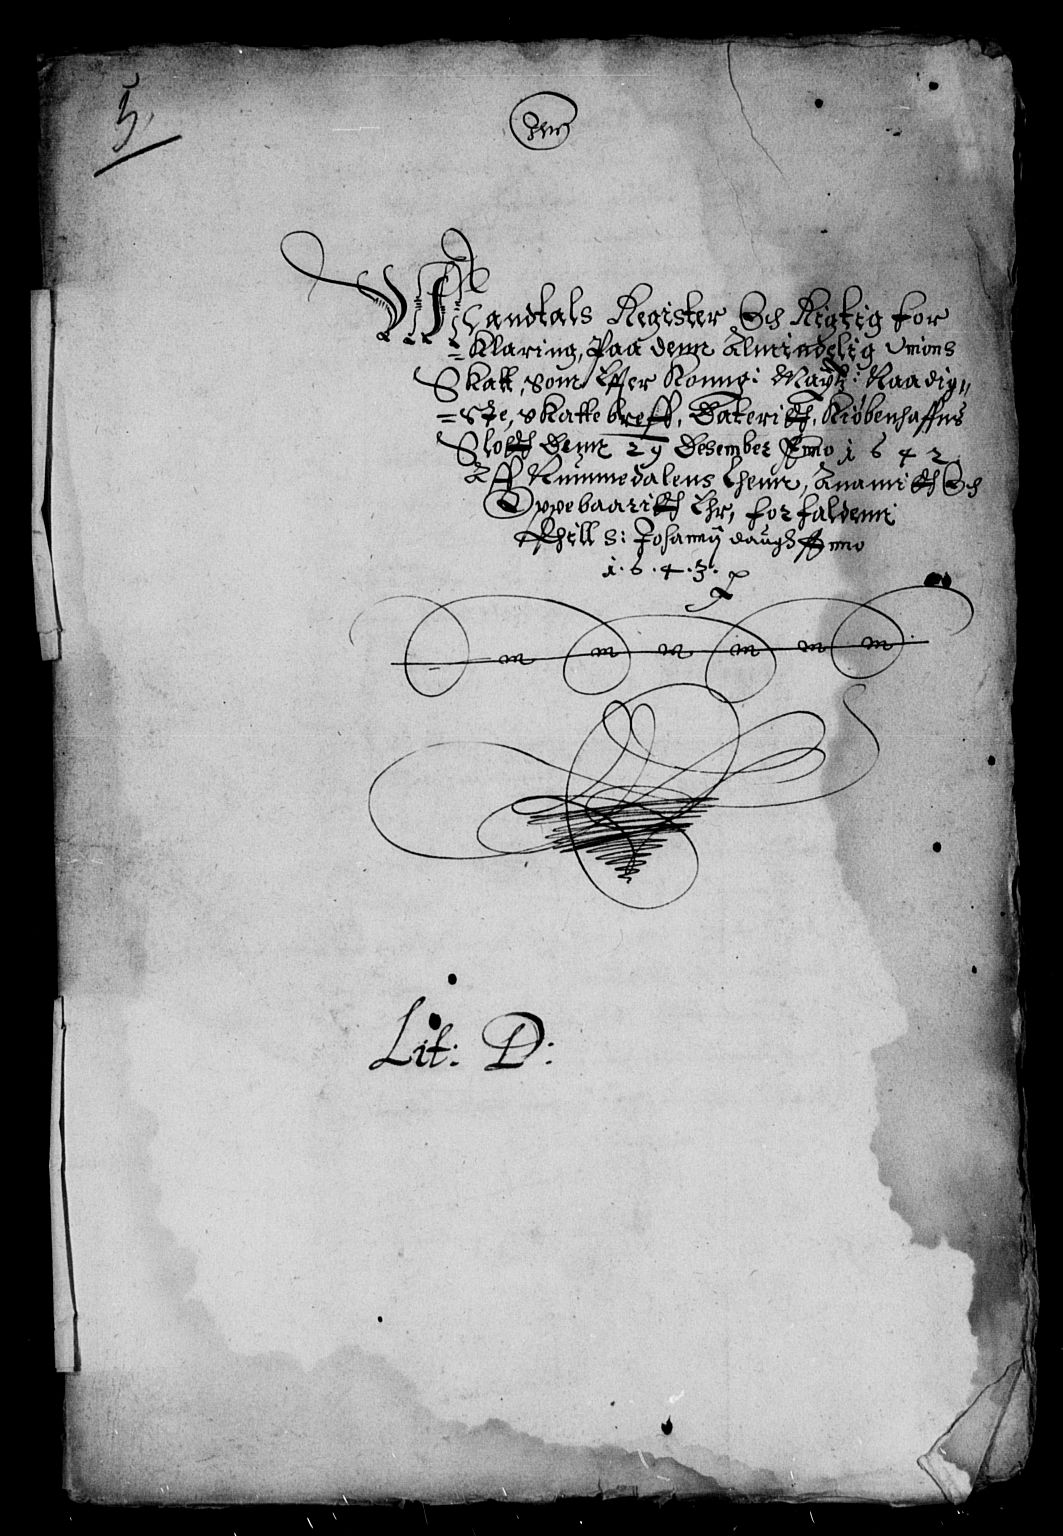 5.
Mandtals Register Och Rigtig for
=Klaring, Paa denn Almindelig Unions
Skatt, som Effter Konng: Maÿtz: Naadig„
=ste, skatte breff, Daterith, Kiøbenhaffns
Slotth Denn 29 Desember Anno 1642.
Aff Nummedalens Lhenn, Anamith Och
Oppebaarith Ehr, forfaldenn
Thill S: Johannÿ daugh Anno
1.6.4.3.
Lit: D: